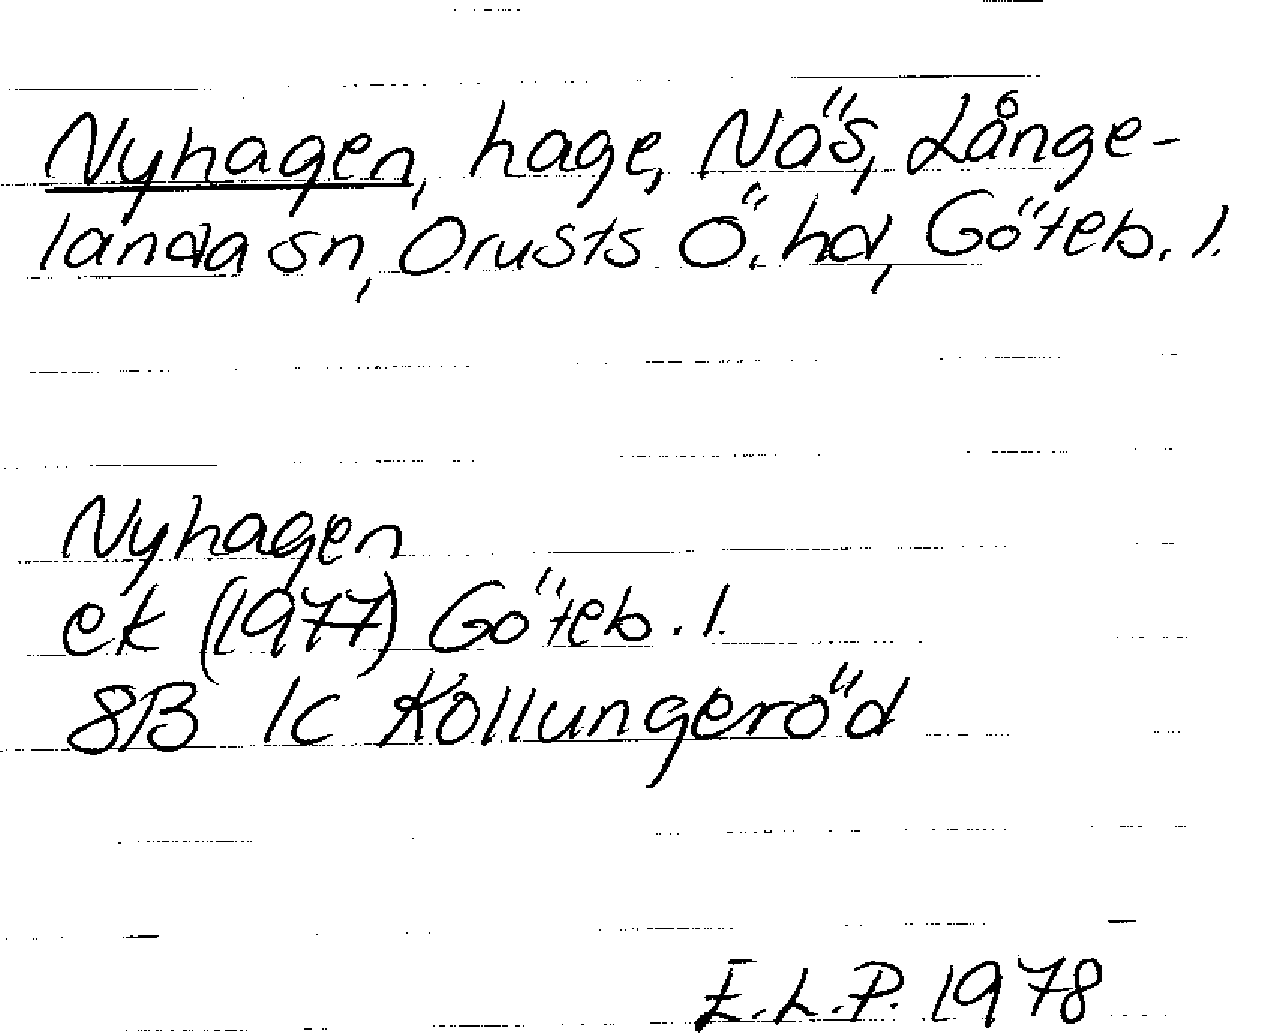 Nyhagen, hage, Näs, Långe-
landa sn, Orusts Ö. hd, Göteb. l.
Nyhagen
ek (1977) Göteb. l.
8B 1c Kollungeröd
E.L.P. 1978